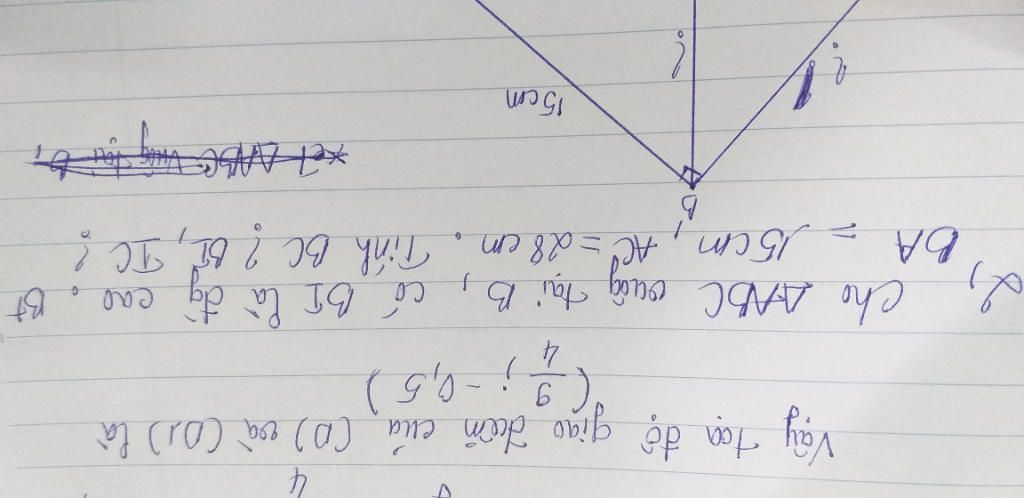 4
Vậy tọa độ giao điểm của (D) và (D1) là
(9/4 ; -0,5)
2, Cho ΔABC vuông tại B, có BI là đg cao. Bt
BA = 15cm, AC = 28cm. Tính BC? BI, IC?
B
xét ΔABC vuông tại B,
15cm
?
?